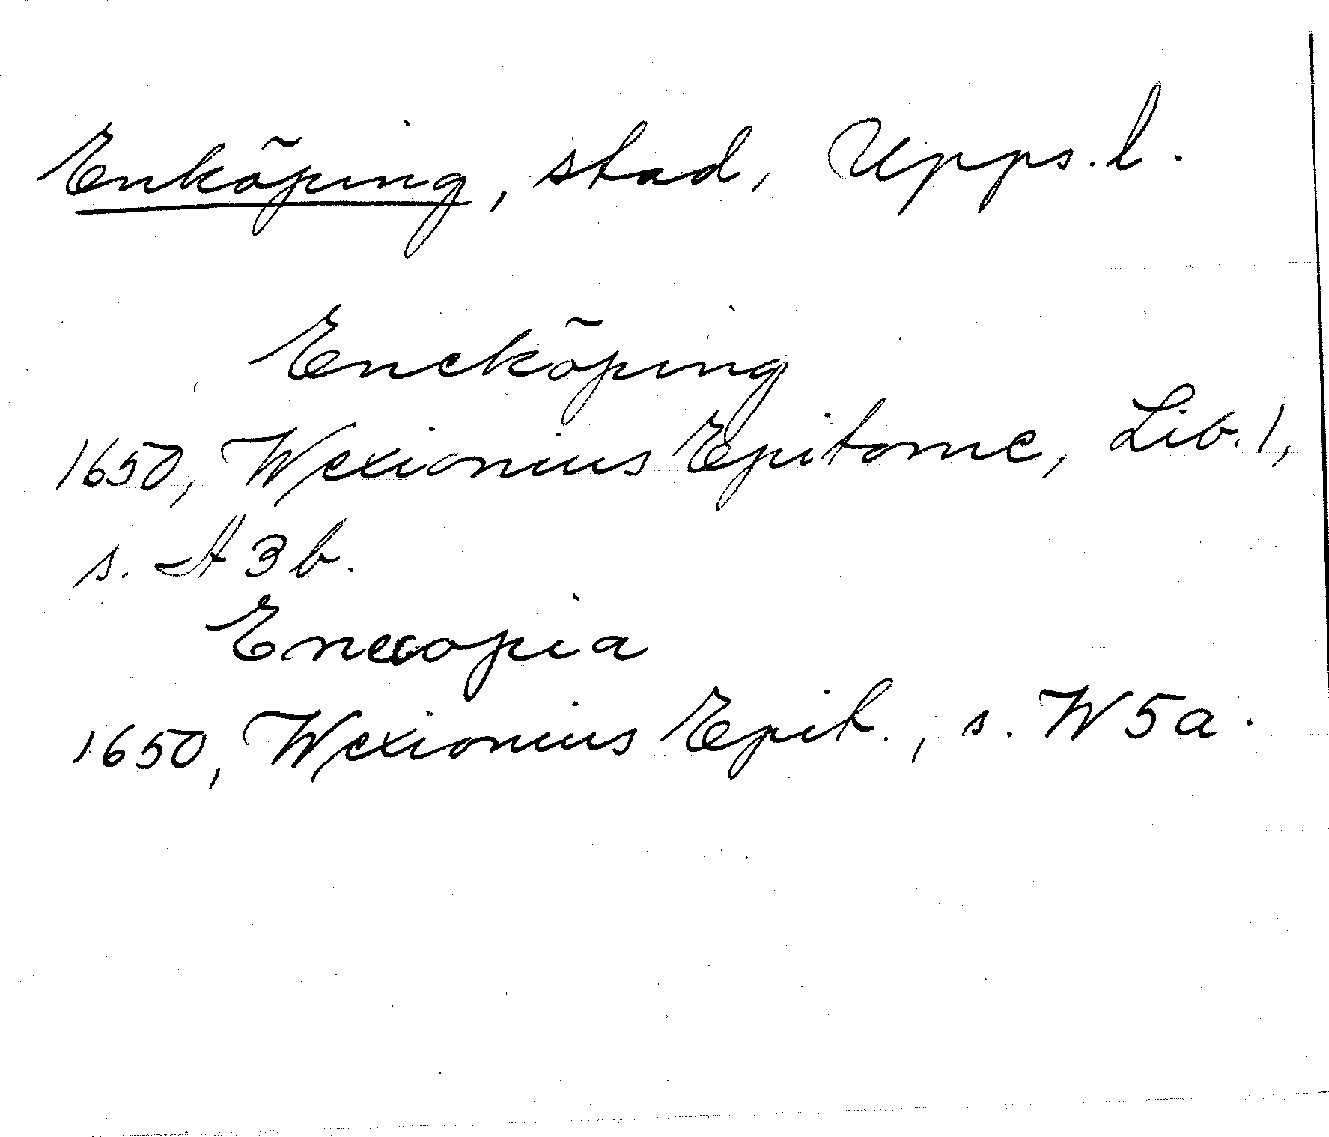 Enköping, stad, Upps. l.
Encköping
1650, Wexionius Epitome, Lib. 1,
s. A 3 b.
Enecopia
1650, Wexionius Epit., s. W 5 a.